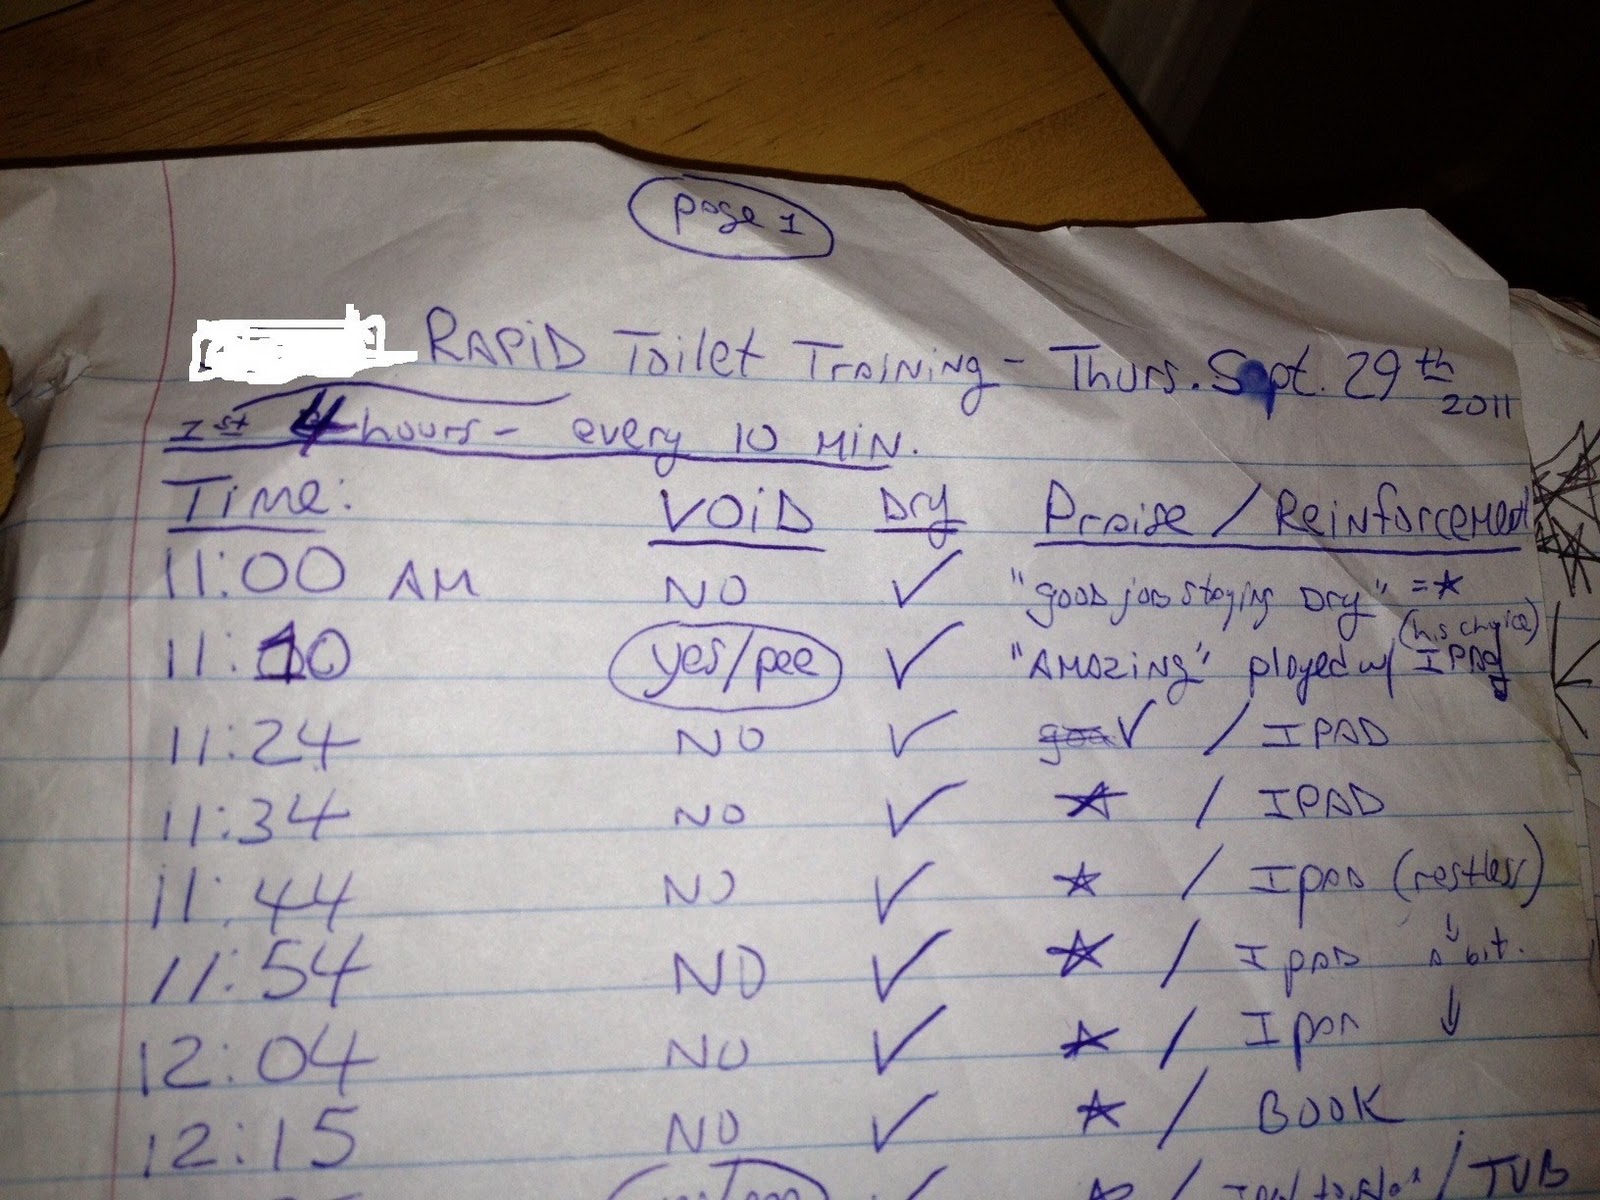 page 1
RAPiD Toilet Training - Thurs. Sept. 29th 2011
1st 4 hours - every 10 MiN.
Time: VOiD Dry Praise / Reinforcement
11:00 AM NO ✓ "good job staying Dry" = ★
11:10 yes/pee ✓ "AMazing" played w/ IPAD (his choice)
11:24 NO ✓ ✓ / IPAD
11:34 NO ✓ ★ / IPAD
11:44 NO ✓ ★ / IPAD (restless)
11:54 NO ✓ ★ / IPAD ↓ a bit.
12:04 NO ✓ ★ / IPAD ↓
12:15 NO ✓ ★ / BOOK
✓ ★ / TUB